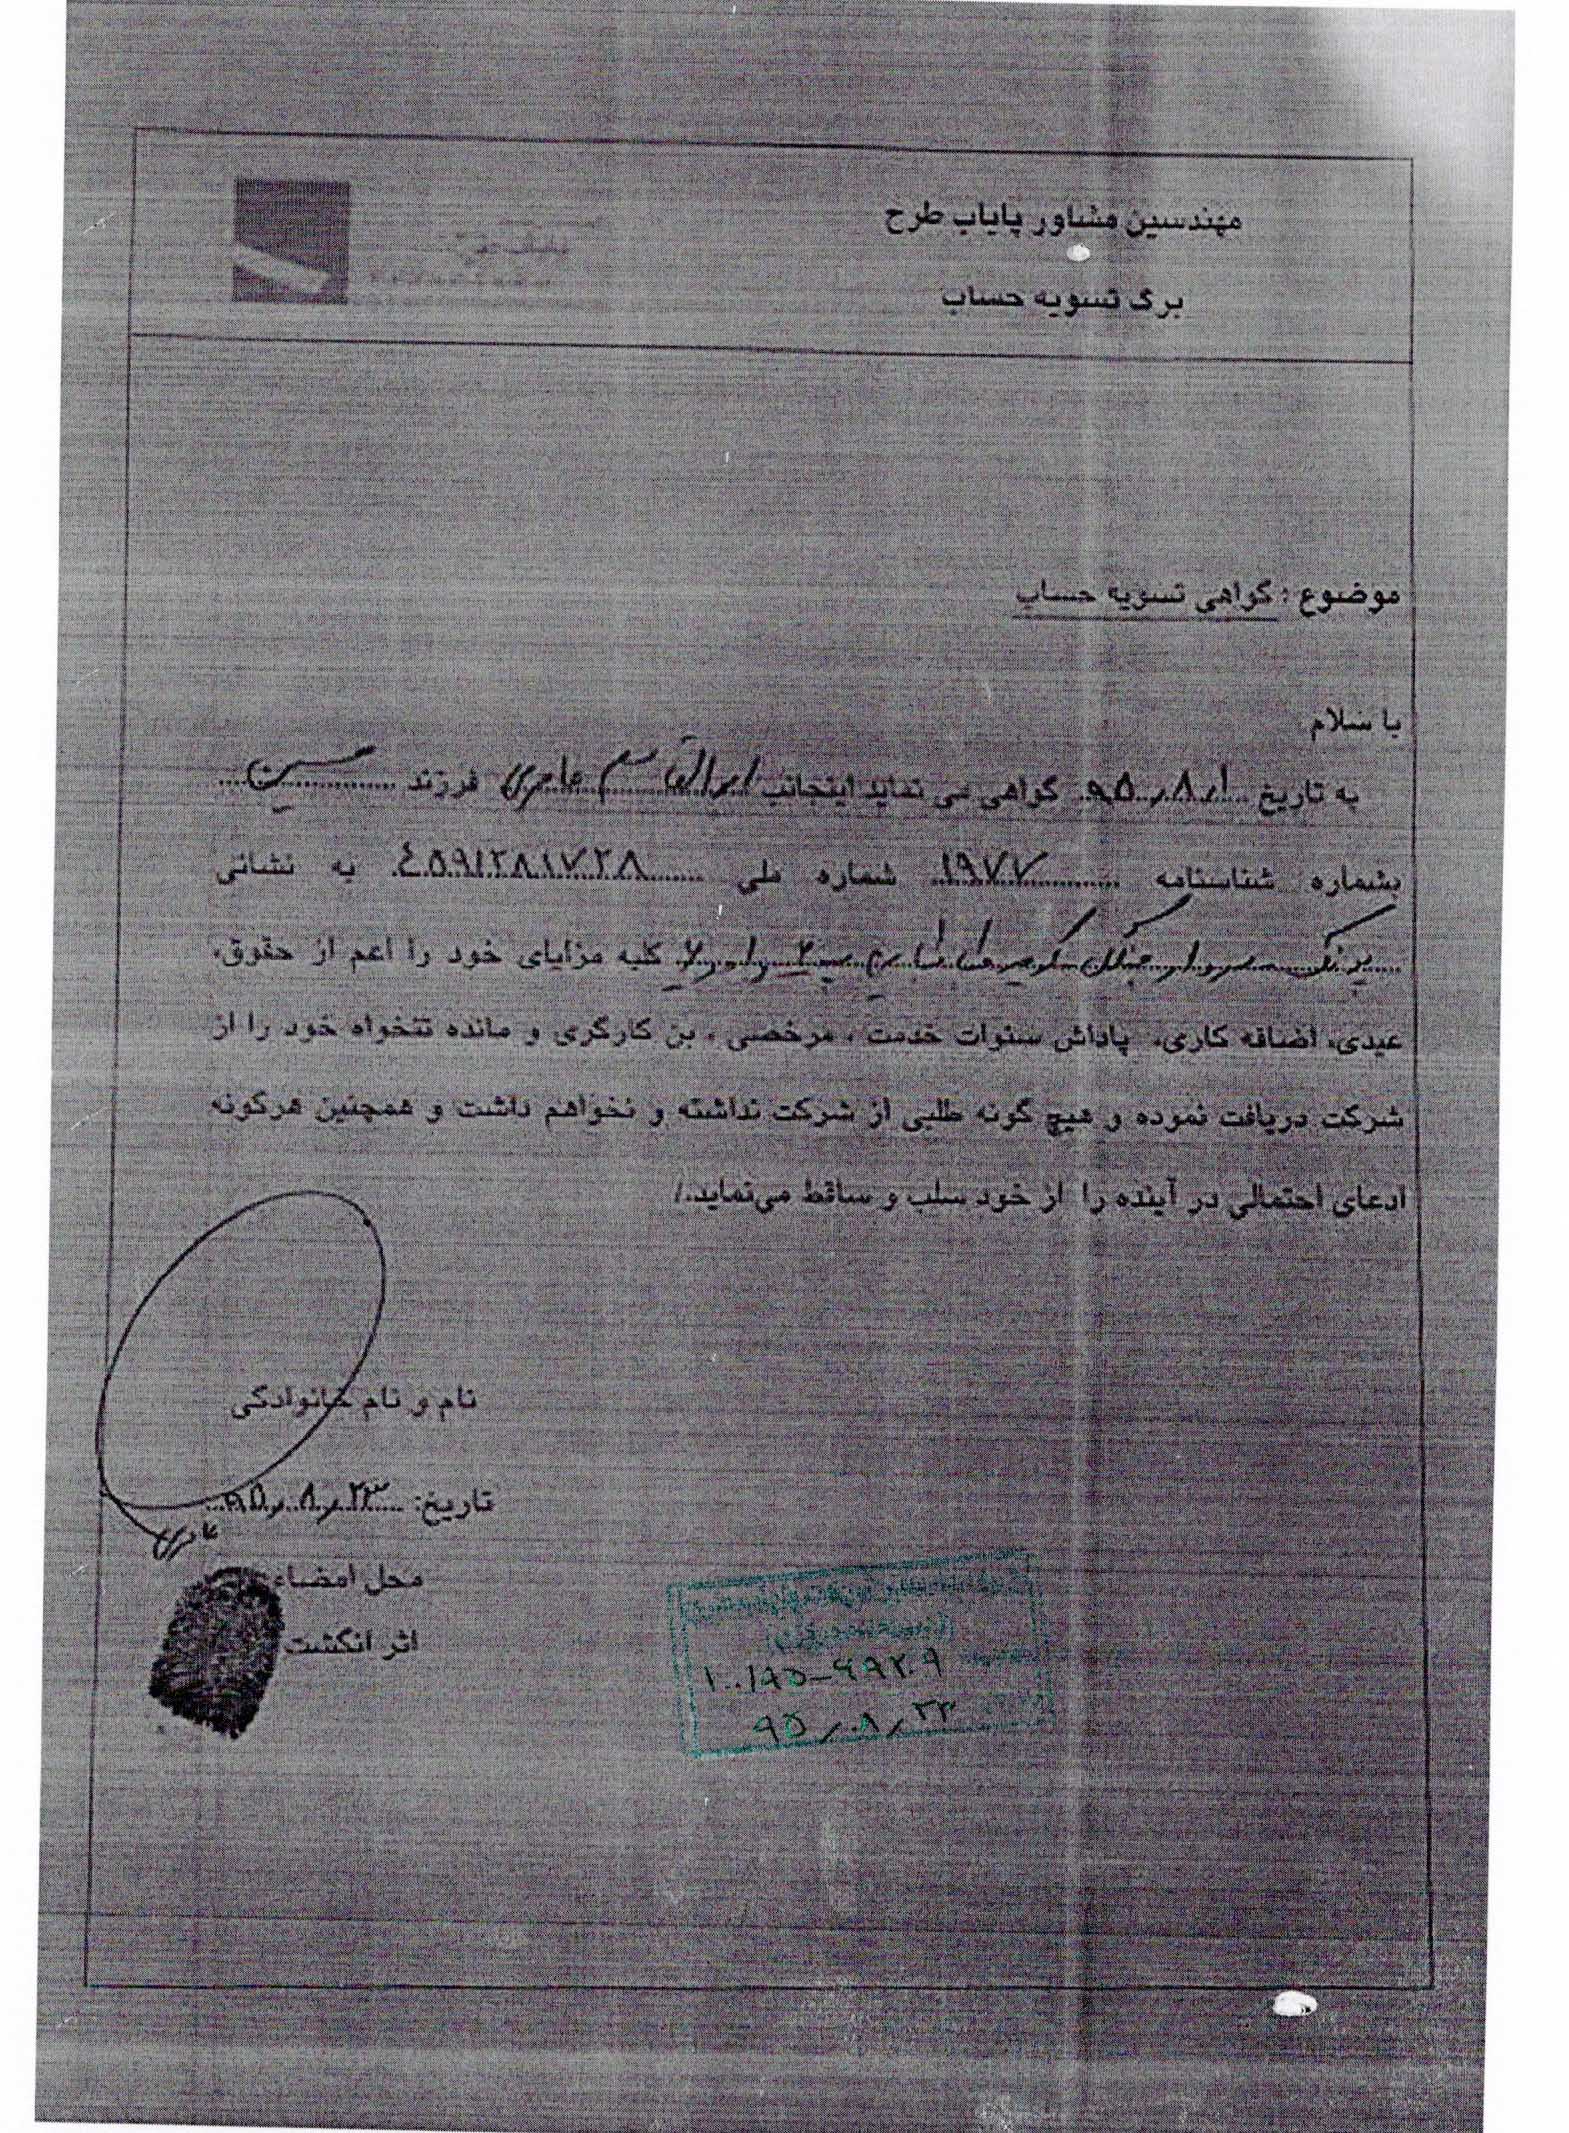 مهندسین مشاور پایاب طرح
برگ تسویه حساب
موضوع : گواهی تسویه حساب
با سلام
به تاریخ ۹۵/۸/۱ گواهی می نماید اینجانب ابوالقاسم عامری فرزند حسین
بشماره شناسنامه ۱۹۷۷ شماره ملی ۴۵۹۱۲۸۱۷۲۸ به نشانی
کلیه مزایای خود را اعم از حقوق،
عیدی، اضافه کاری، پاداش سنوات خدمت ، مرخصی ، بن کارگری و مانده تنخواه خود را از
شرکت دریافت نموده و هیچ گونه طلبی از شرکت نداشته و نخواهم داشت و همچنین هرگونه
ادعای احتمالی در آینده را از خود سلب و ساقط می‌نماید./
نام و نام خانوادگی
تاریخ: ۹۵/۸/۲۳
عامری
محل امضاء
اثر انگشت
۹۵/۰۸/۲۳